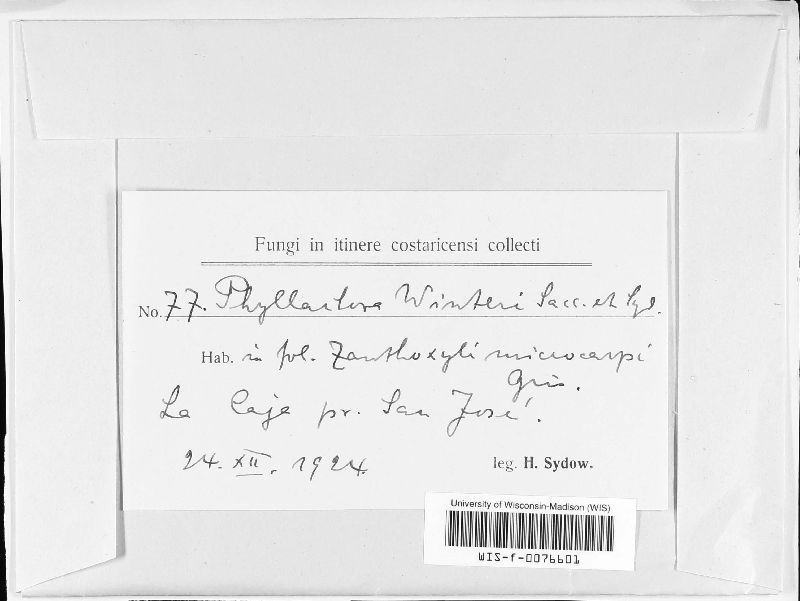 Fungi in itinere costaricensi collecti
No. 77. Phyllachora Winteri Sacc. et Syd.
Hab. in fol. Zanthoxyli microcarpi
Gris.
La Caja pr. San José.
24. XII. 1924.
leg. H. Sydow.
University of Wisconsin-Madison (WIS)
WIS-f-0076601